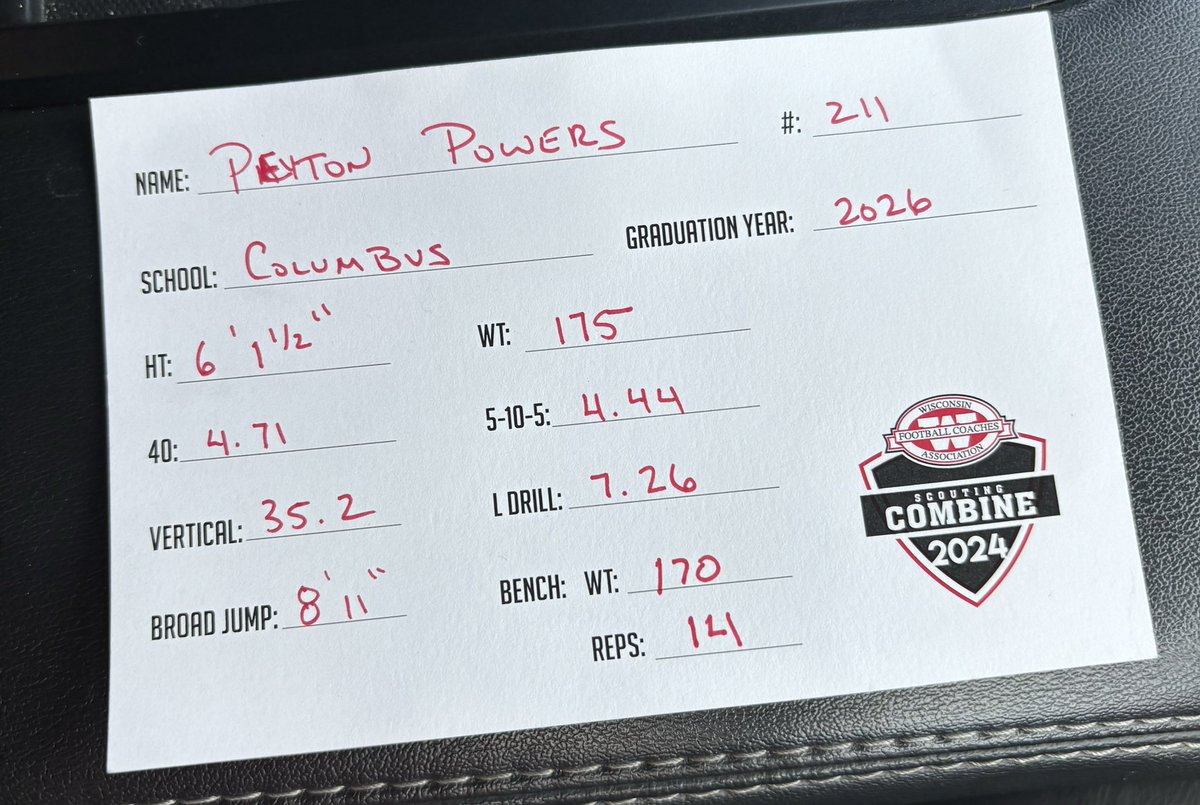 NAME: PEYTON POWERS #: 211
SCHOOL: COLUMBUS GRADUATION YEAR: 2026
HT: 6' 1 1/2" WT: 175
40: 4.71 5-10-5: 4.44
VERTICAL: 35.2 L DRILL: 7.26
BROAD JUMP: 8' 11" BENCH: WT: 170
REPS: 14
WISCONSIN
FOOTBALL COACHES
ASSOCIATION
SCOUTING
COMBINE
2024